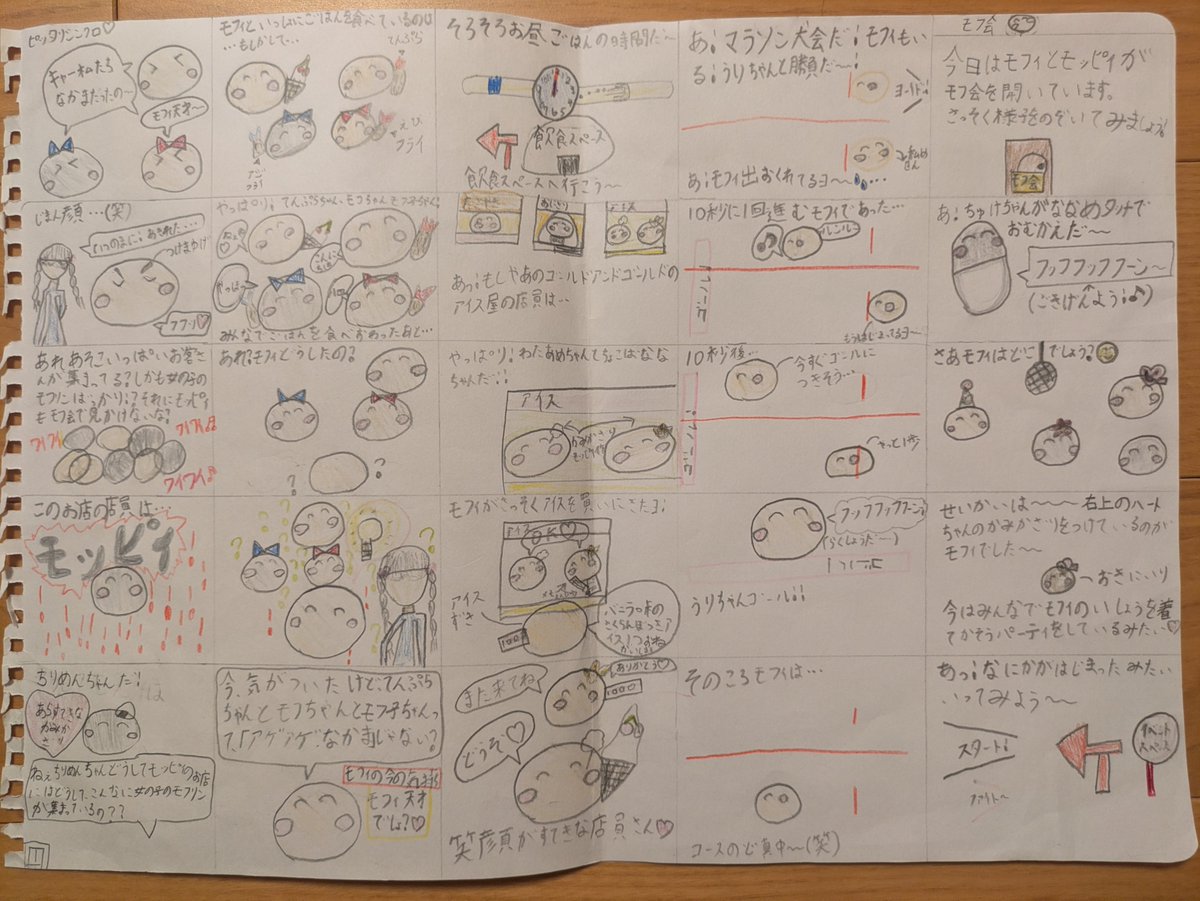 モフ会
今日はモフィとモッピィが
モフ会を開いています。
さっそく様子をのぞいてみましょう!
モフ会
あ!ちゅけちゃんがななめタッチで
おむかえだ〜
フッフフッフフーン〜
(ごきげんよう!♪)
さあモフィはどこでしょう?
せいかいは〜〜〜右上のハート
ちゃんのかみかざりをつけているのが
モフィでした〜
おきにいり
今はみんなでモフィのいしょうを着
てかそうパーティをしているみたい♡
あっ!なにかがはじまったみたい
いってみよう〜
スタート!
イベント
スペース
あ!マラソン大会だ!モフィもい
る!うりちゃんと勝負だ〜!
ヨーイドン!
あ!モフィ出おくれてるヨ〜
10秒に1回進むモフィであった…
ルンルン
もうはじまってるヨ〜
10秒後…
今すぐゴールに
つきそう…
やっと1歩
フッフフッフフーン♪
(らくしょうだ〜)
うりちゃんゴール!!
そのころモフィは…
コースのど真中〜(笑)
そろそろお昼ごはんの時間だ〜
飲食スペース
飲食スペースへ行こう〜
アイス
あっ!もしやあのゴールドアンドゴールドの
アイス屋の店員は…
やっぱり!わたあめちゃんとちょこばなな
ちゃんだ!!
アイス
かみかざり
モフィがさっそくアイスを買いにきたヨ!
アイス
OK♡
アイス
ずき
1000
バニラ味の
さくらんぼつき
アイス1つおね
がいします
また来てね
ありがとう♡
1000
どうぞ♡
笑顔がすてきな店員さん♡
モフィといっしょにごはんを食べているのは
…もしかして…
てんぷら
えび
フライ
アジ
フライ
やっぱり!てんぷらちゃん、モフちゃん、モフ子ちゃん!
こんにちは
やっほー
みんなでごはんを食べおわったあと…
あれ?モフィどうしたの?
今、気がついたけど、てんぷら
ちゃんとモフちゃんとモフ子ちゃんっ
て、「アゲアゲ」なかまじゃない?
モフィの今の気持ち
モフィ天才
でしょ?♡
ピッタリシンクロ♡
キャー私たち
なかまだったの〜
モフィ天才〜
じまん顔…(笑)
いつのまに!あきれた…
つけまゆげ
フフーン♡
あれ、あそこいっぱいお客さ
んが集まってる?しかも女の子の
モフリンばっかり!?それにモッピィ
をモフ会で見かけないな?
ワイワイ
ワイワイ♪
ワイワイ♪
このお店の店員は…
モッピィ
ちりめんちゃんだ!
あらすてきな
かみか
ざり
ねぇちりめんちゃんどうしてモッピィのお店
にはどうして、こんなに女の子のモフリン
が集まっているの??